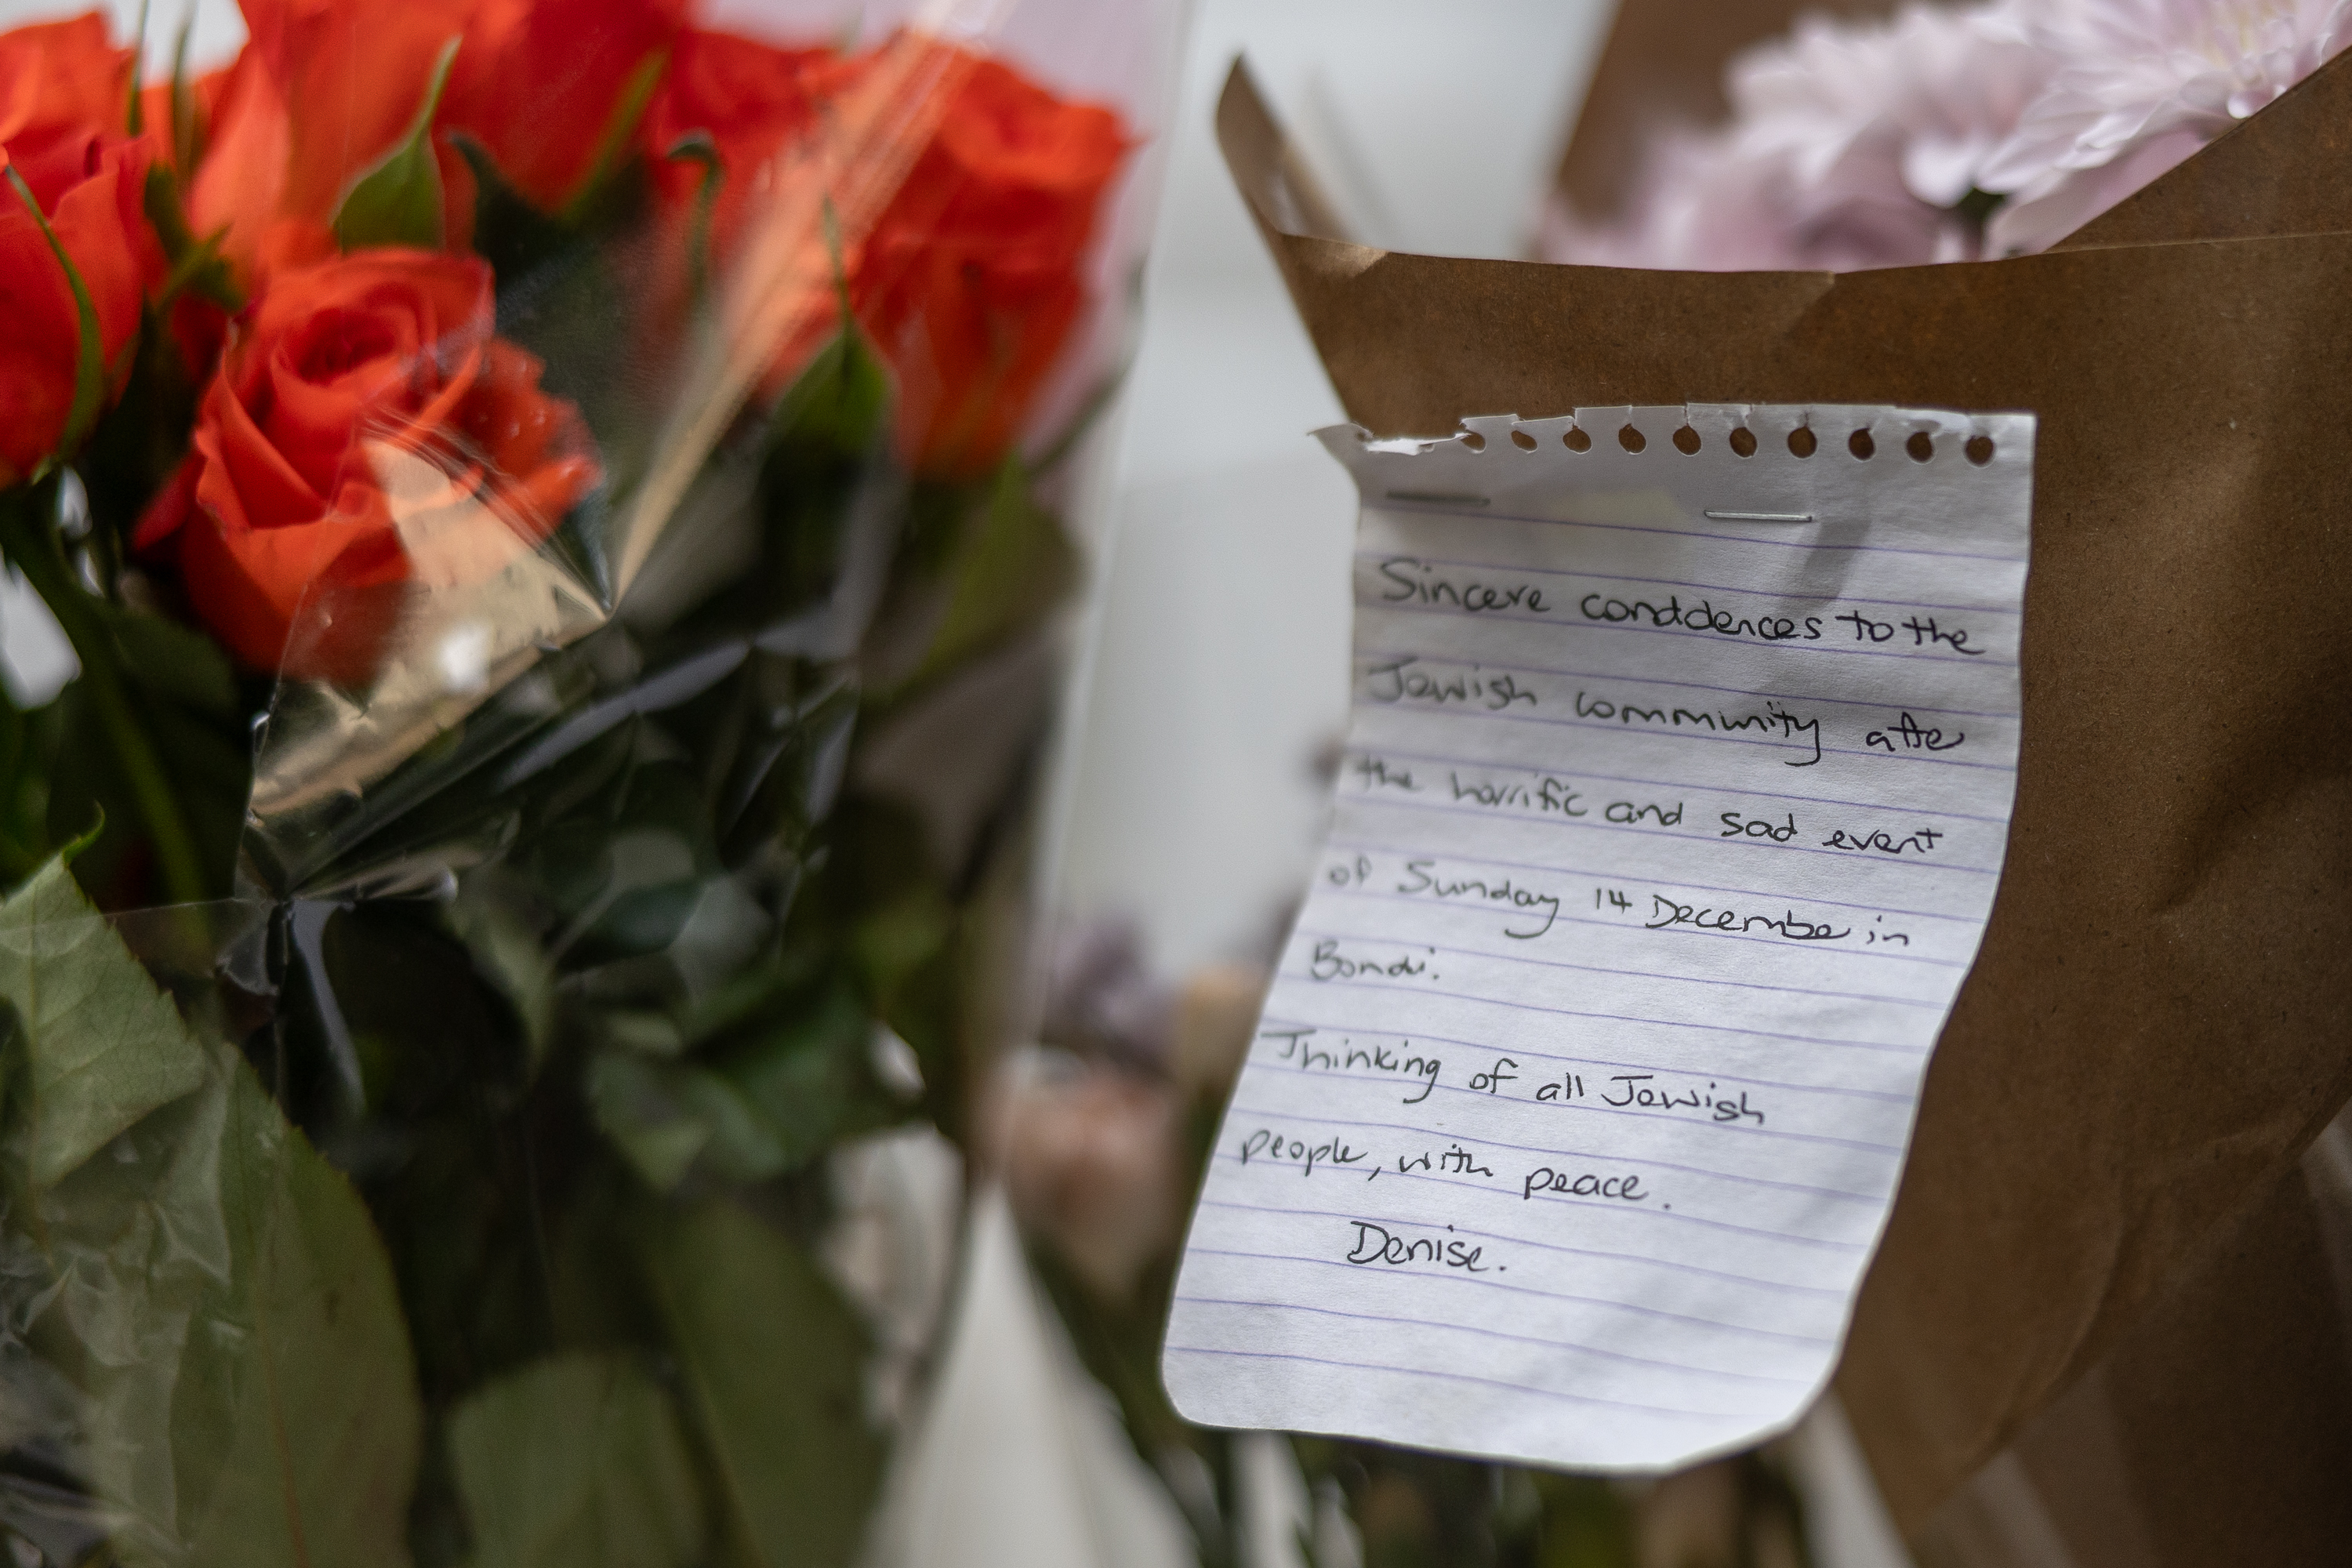 Sincere conddences to the
Jewish community afte
the horrific and sad event
of Sunday 14 Decembe in
Bondi.
Thinking of all Jewish
people, with peace.
Denise.